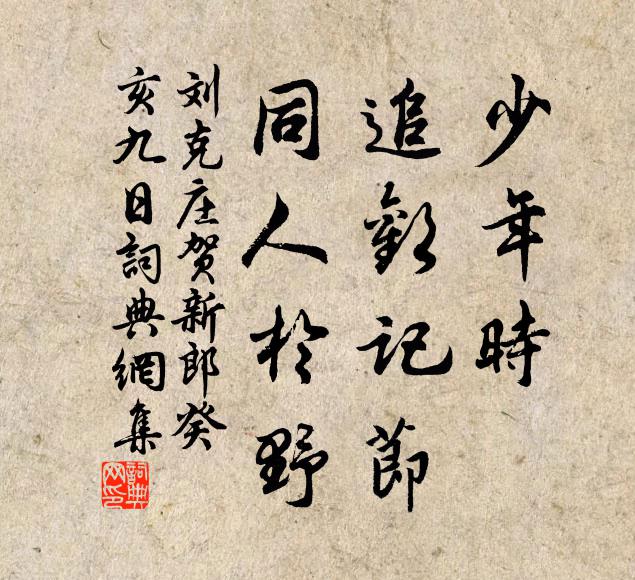 少年時
追歡記節
同人於野
刘克庄贺新郎癸
亥九日詞典網集
詞典
网印